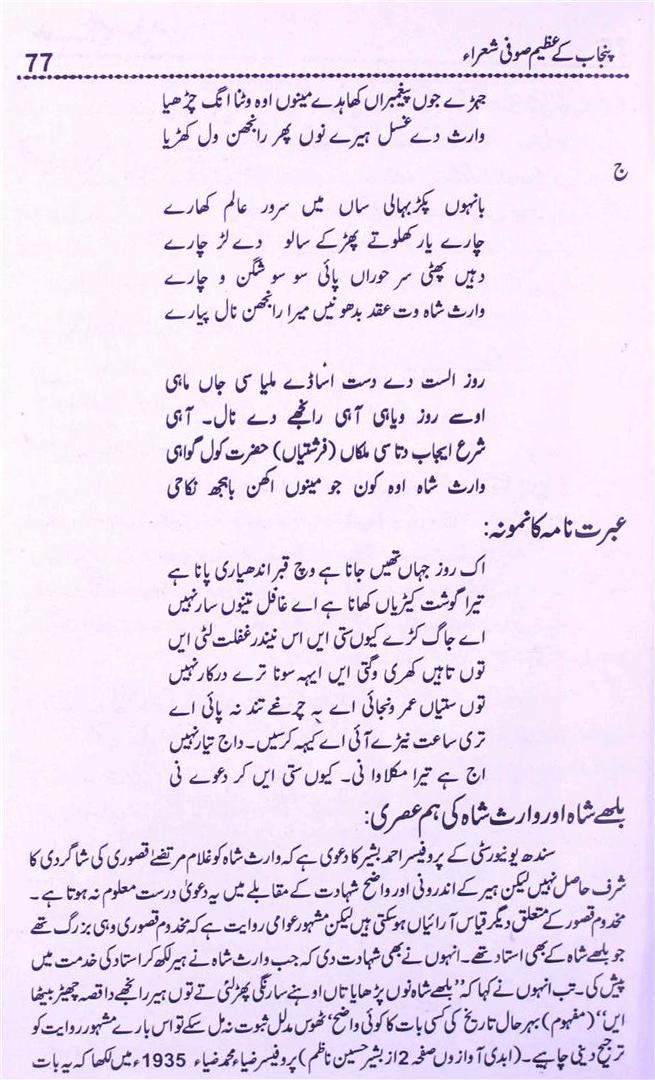 پنجاب کے عظیم صوفی شعراء
77
جہڑے جوں پیغمبراں کھاہدے مینوں اوہ وٹنا انگ چڑھیا
وارث دے غسل ہیرے نوں پھر رانجھن ول کھڑیا
ج
بانہوں پکڑ بہالی ساں میں سرور عالم کھارے
چارے یار کھلوتے پھڑ کے سالو دے لڑ چارے
دہیں پھٹی سر حوراں پائی سو سو شگن و چارے
وارث شاہ وت عقد بدھو نیں میرا رانجھن نال پیارے
روز الست دے دست اساڈے ملیا سی جاں ماہی
اوسے روز ویاہی آہی رانجھے دے نال۔ آہی
شرع ایجاب دتا سی ملکاں (فرشتیاں) حضرت کول گواہی
وارث شاہ اوہ کون جو مینوں اکھن باہجھ نکاحی
عبرت نامہ کا نمونہ:
اک روز جہاں تھیں جانا ہے وچ قبر اندھیاری پانا ہے
تیرا گوشت کیڑیاں کھانا ہے اے غافل تینوں سار نہیں
اے جاگ کڑے کیوں ستی ایں اس نیندر غفلت لٹی ایں
توں تاہیں کھری وگتی ایں ایہہ سونا ترے درکار نہیں
توں ستیاں عمر ونجائی اے بہ چرغے تند نہ پائی اے
تری ساعت نیڑے آئی اے کیہہ کرسیں۔ داج تیار نہیں
اج ہے تیرا مکلاوا نی۔ کیوں ستی ایں کر دعوے نی
بلھے شاہ اور وارث شاہ کی ہم عصری:
سندھ یونیورسٹی کے پروفیسر احمد بشیر کا دعوی ہے کہ وارث شاہ کو غلام مرتضےٰ قصوری کی شاگردی کا
شرف حاصل نہیں لیکن ہیر کے اندرونی اور واضح شہادت کے مقابلے میں یہ دعویٰ درست معلوم نہ ہوتا ہے۔
مخدوم قصور کے متعلق دیگر قیاس آرائیاں ہو سکتی ہیں لیکن مشہور عوامی روایت ہے کہ مخدوم قصوری وہی بزرگ تھے
جو بلھے شاہ کے بھی استاد تھے۔ انہوں نے بھی شہادت دی کہ جب وارث شاہ نے ہیر لکھ کر استاد کی خدمت میں
پیش کی۔ تب انہوں نے کہا کہ ”بلھے شاہ نوں پڑھایا تاں اوہنے سارنگی پھڑ لئی تے توں ہیر رانجھے دا قصہ چھیڑ بیٹھا
ایں“ (مفہوم) بہر حال تاریخ کی کسی بات کا کوئی واضح‘ ٹھوس مدلل ثبوت نہ مل سکے تو اس بارے مشہور روایت کو
ترجیح دینی چاہیے۔ (ابدی آوازوں صفحہ 2 از بشیر حسین ناظم) پروفیسر ضیاء محمد ضیاء 1935ء میں لکھا کہ یہ بات